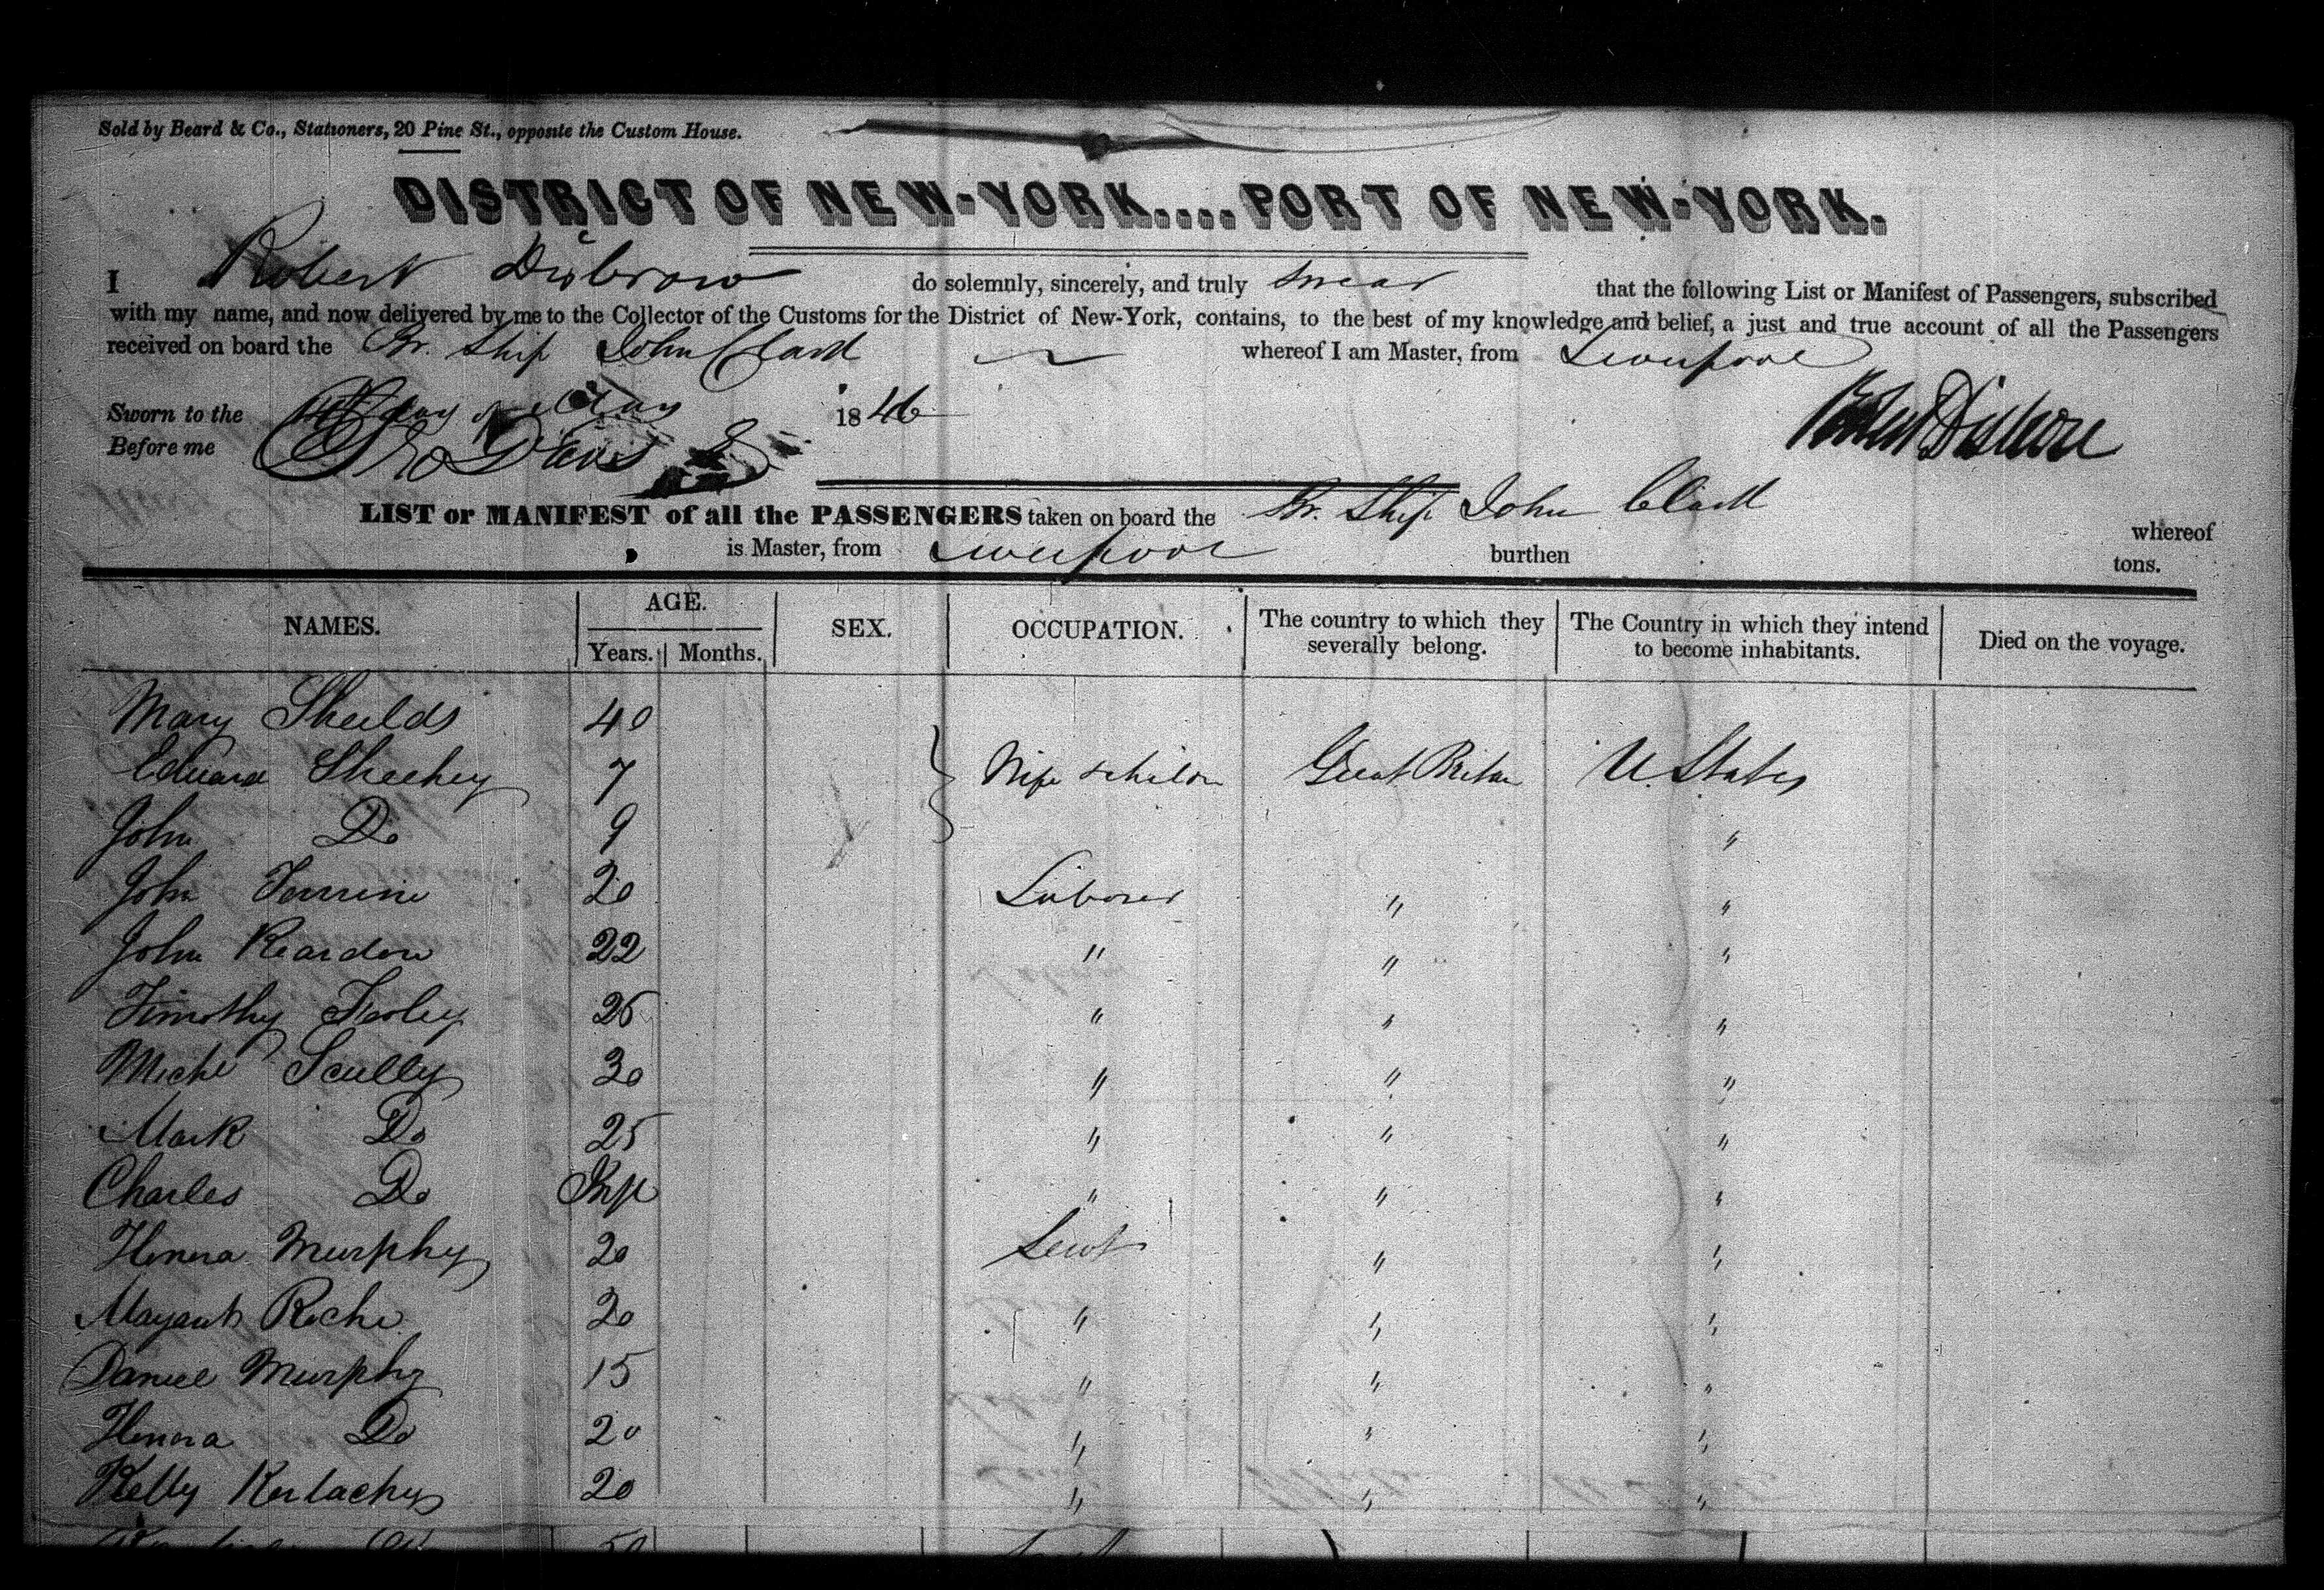 Sold by Beard & Co., Stationers, 20 Pine St., opposite the Custom House.
DISTRICT OF NEW-YORK....PORT OF NEW-YORK.
I Robert Disbrow do solemnly, sincerely, and truly swear that the following List or Manifest of Passengers, subscribed
with my name, and now delivered by me to the Collector of the Customs for the District of New-York, contains, to the best of my knowledge and belief, a just and true account of all the Passengers
received on board the Br. Ship John Clark whereof I am Master, from Liverpool
Sworn to the day of 1846
Before me
LIST or MANIFEST of all the PASSENGERS taken on board the Br. Ship John Clark whereof
is Master, from Liverpool burthen tons.
NAMES. AGE. Years. Months. SEX. OCCUPATION. The country to which they severally belong. The Country in which they intend to become inhabitants. Died on the voyage.
Mary Sheilds 40
Edward Sheehey 7 Wife & childn Great Britan U. States
John Do 9 "
John 20 Laborer " "
John Reardon 22 " " "
Timothy 26 " " "
Michl Scully 30 " " "
Mark Do 25 " " "
Charles Do Inft " " "
Honora Murphy 20 Servt " "
Roche 20 " " "
Daniel Murphy 15 " " "
Honora Do 20 " " "
20 " " "